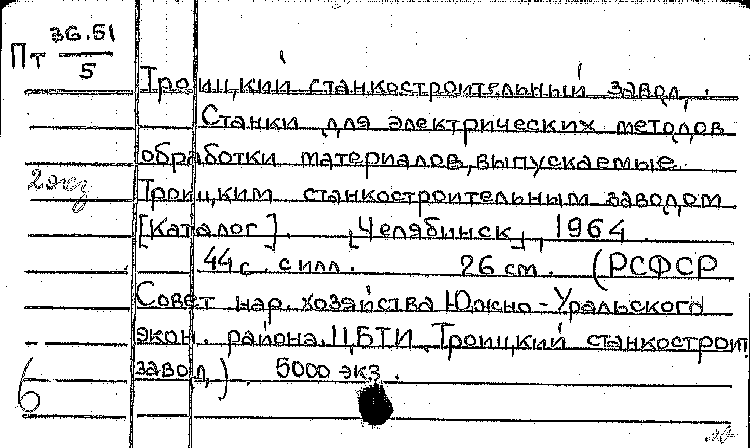 36.51
Пт
5
Троицкий станкостроительный завод.
Станки для электрических методов
обработки материалов, выпускаемые
2 экз
Троицким станкостроительным заводом
[Каталог]. [Челябинск], 1964.
44 с. с илл. 26 см. (РСФСР
Совет нар. хозяйства Южно-Уральского
экон. района. ЦБТИ. Троицкий станкостроит.
завод). 5000 экз.
6